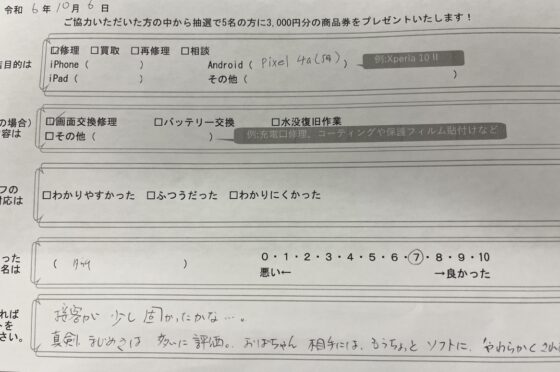 令和 6 年 10 月 6 日
ご協力いただいた方の中から抽選で5名の方に3,000円分の商品券をプレゼントいたします！
目的は
☑修理 □買取 □再修理 □相談
iPhone（ ） Android（ Pixel 4a(5G) ） 例:Xperia 10 II
iPad（ ） その他（ ）
の場合）
容は
☑画面交換修理 □バッテリー交換 □水没復旧作業
□その他（ ） 例:充電口修理、コーティングや保護フィルム貼付けなど
フの
対応は
□わかりやすかった □ふつうだった □わかりにくかった
った
名は
（ ） 0・1・2・3・4・5・6・⑦・8・9・10
悪い← →良かった
れば
トを
さい。
接客が 少し 固かったかな…。
真剣、まじめさは 多いに 評価。 おばちゃん 相手には、もうちょっと ソフトに、やわらかく